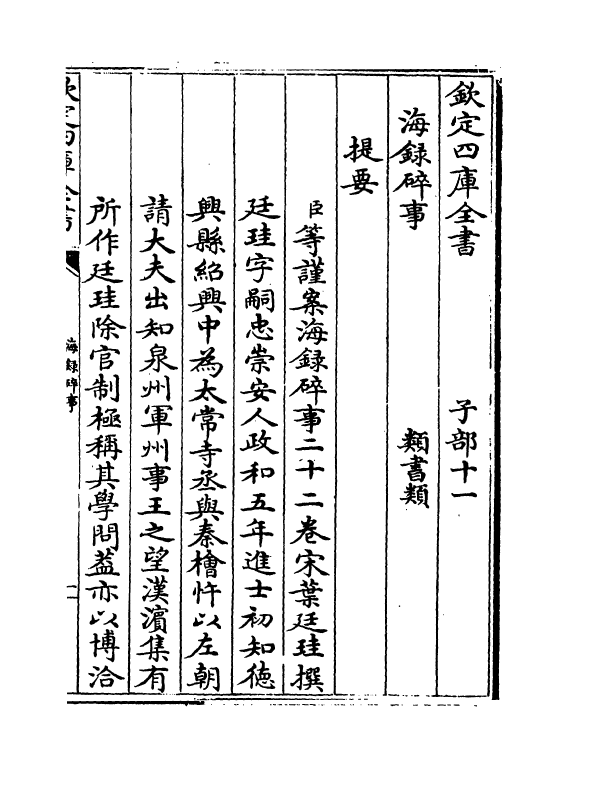 欽定四庫全書　子部十一
海録碎事　類書類
提要
臣等謹案海録碎事二十二卷宋葉廷珪撰
廷珪字嗣忠崇安人政和五年進士初知德
興縣紹興中為太常寺丞與秦檜忤以左朝
請大夫出知泉州軍州事王之望漢濵集有
所作廷珪除官制極稱其學問葢亦以博洽
欽定四庫全書
海録碎事